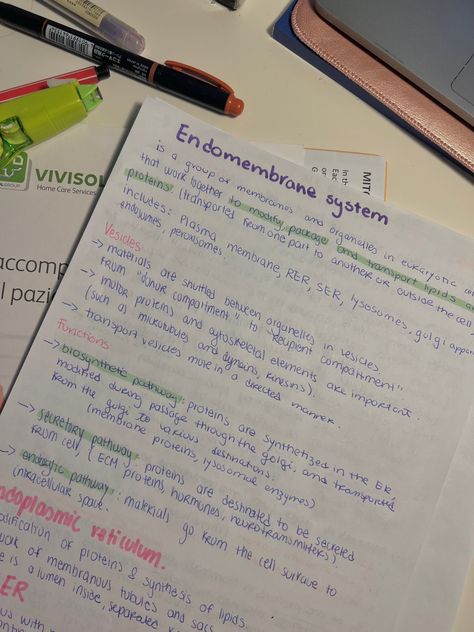 Endomembrane system
is a group of membranes and organelles in eukaryotic
that work together to modify, package and transport lipids
proteins (transported from one part to another or outside the cell
includes: Plasma membrane, RER, SER, lysosomes, golgi
endosomes, peroxisomes.
Vesicles
→ materials are shuttled between organelles in vesicles
From "donor compartment" to "recipient compartment".
→ motor proteins and cytoskeletal elements are important.
(such as microtubules and dyneins, kinesins).
→ transport vesicles move in a directed manner.
Functions
→ biosynthetic pathway: proteins are synthetized in the ER,
modified during passage through the golgi, and transported
from the golgi to various destinations.
(membrane proteins, lysosomal enzymes)
→ secretory pathway: proteins are destinated to be secreted
From cell, (ECM proteins, hormones, neurotransmitters)
→ endocytic pathway: materials go from the cell surface to
intracellular space.
endoplasmic reticulum.
modification of proteins & synthesis of lipids.
work of membranous tubules and sacs
is a lumen inside, separated
ER
VIVISOL
Home Care Services
GROUP
accomp
l pazi